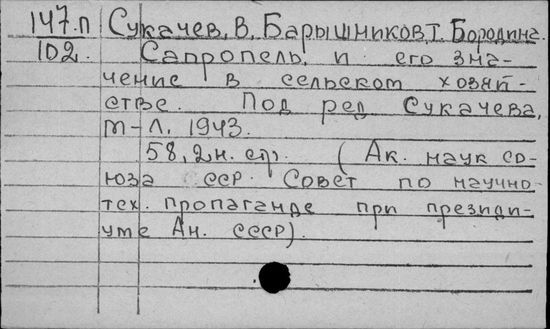 147.п Сукачев, В, Барышников, Т. Бородина.
102. Сапропель, и его зна-
чение в сельском хозяй-
стве. Под ред Сукачева,
М-Л. 1943.
58, 2н. стр. (Ак. наук со-
юза ССР. Совет по научно
тех. пропаганде при президи-
уме Ан. СССР).